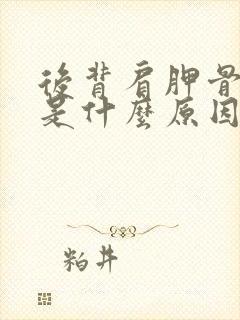 後背肩胛骨
是什麼原因
粕井